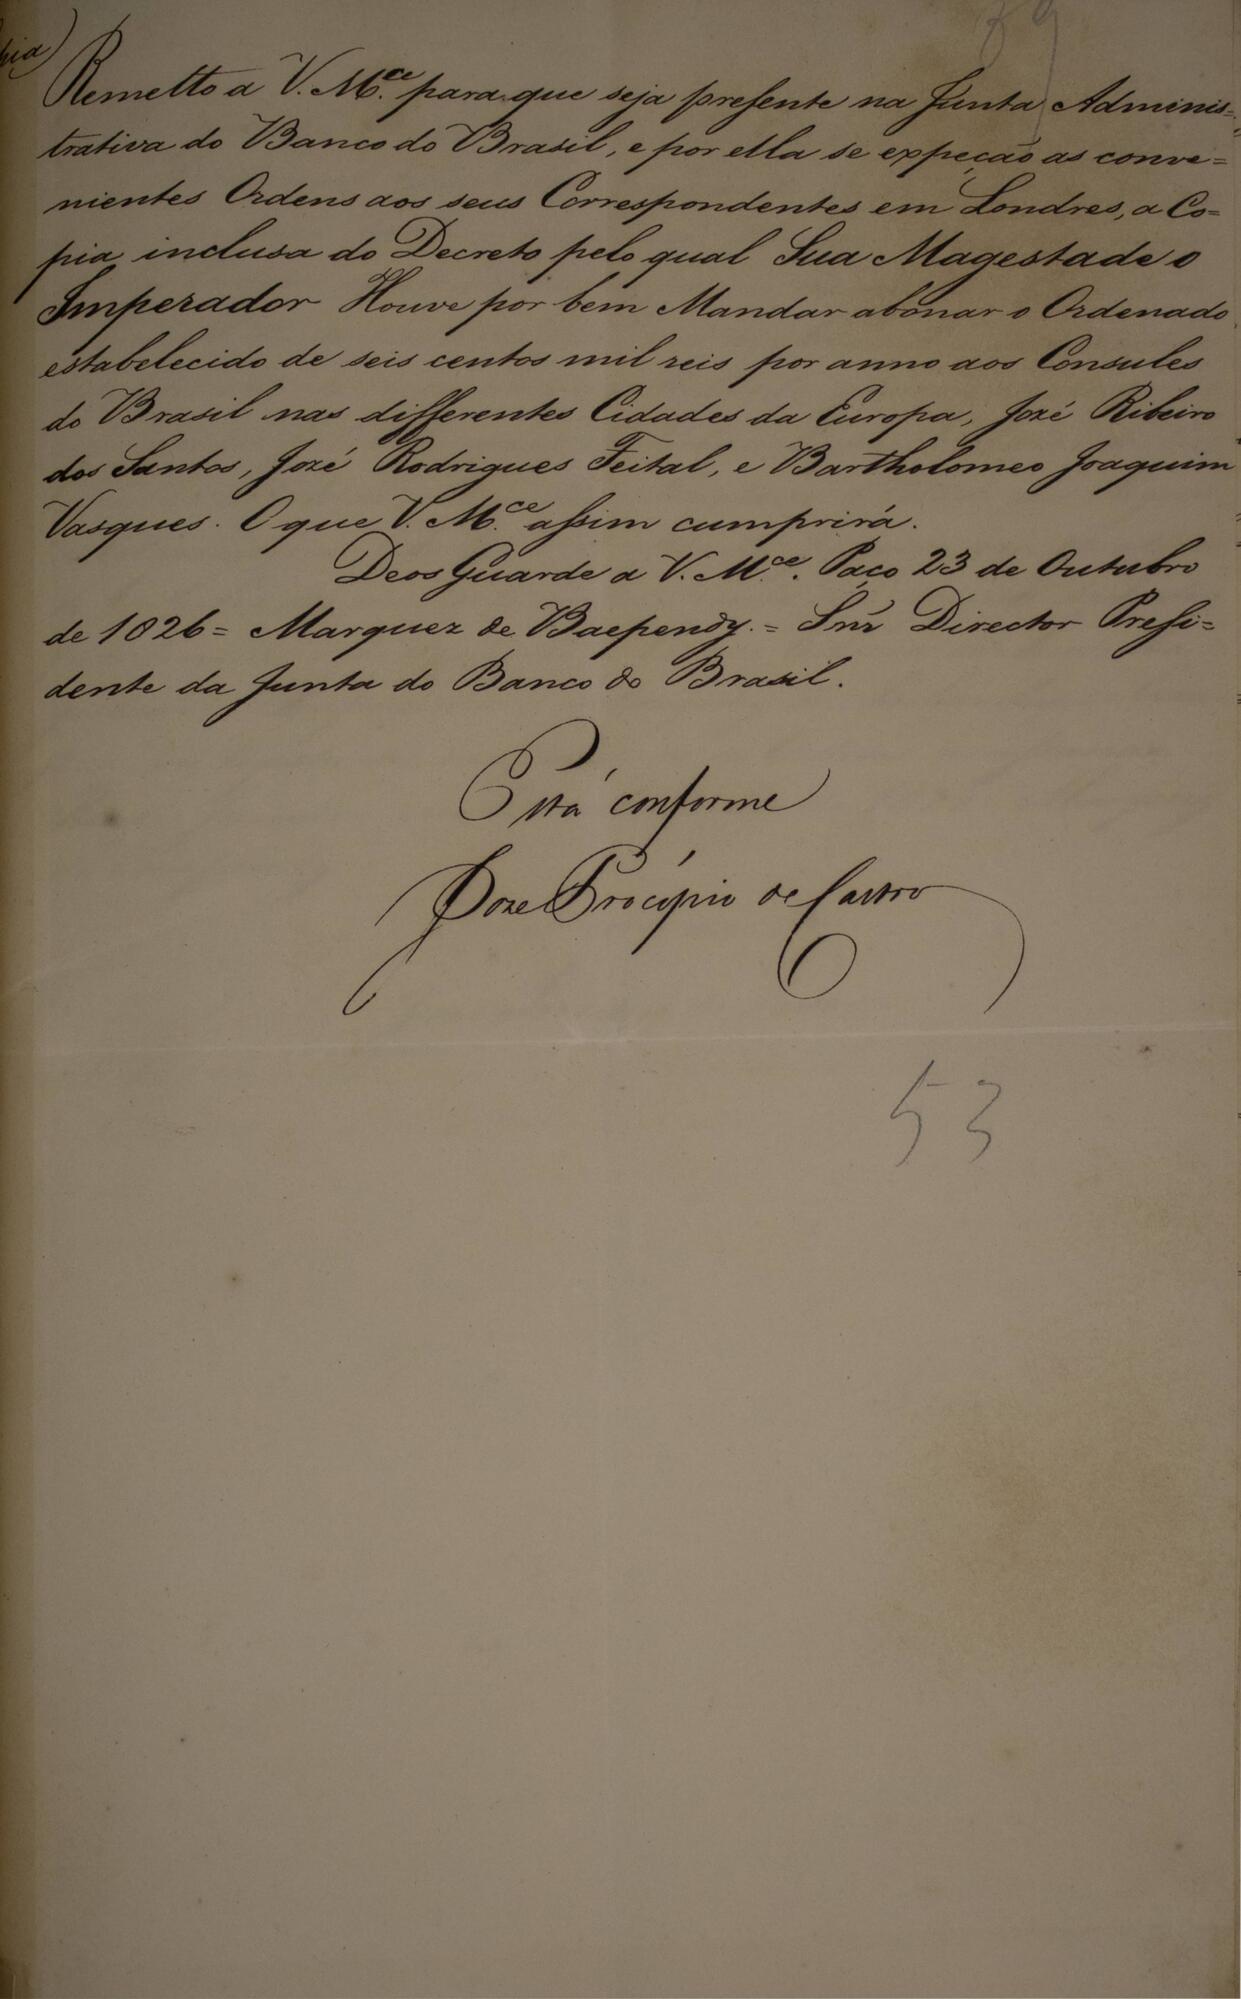 pia)
Remetto a V. M.ce para que seja presente na Junta Adminis=
trativa do Banco do Brasil, e por ella se expeção as conve=
nientes Ordens aos seus Correspondentes em Londres, a Co=
pia inclusa do Decreto pelo qual Sua Magestade o
Imperador Houve por bem Mandar abonar o Ordenado
estabelecido de seis centos mil reis por anno aos Consules
do Brasil nas differentes Cidades da Europa, Jozé Ribeiro
dos Santos, Jozé Rodrigues Feital, e Bartholomeo Joaquim
Vasques. O que V. M.ce assim cumprirá.
Deos Guarde a V. M.ce. Paço 23 de Outubro
de 1826 = Marquez de Baependy. = Snr̃ Director Presi=
dente da Junta do Banco do Brasil.
Está conforme
Joze Procópio de Castro
53